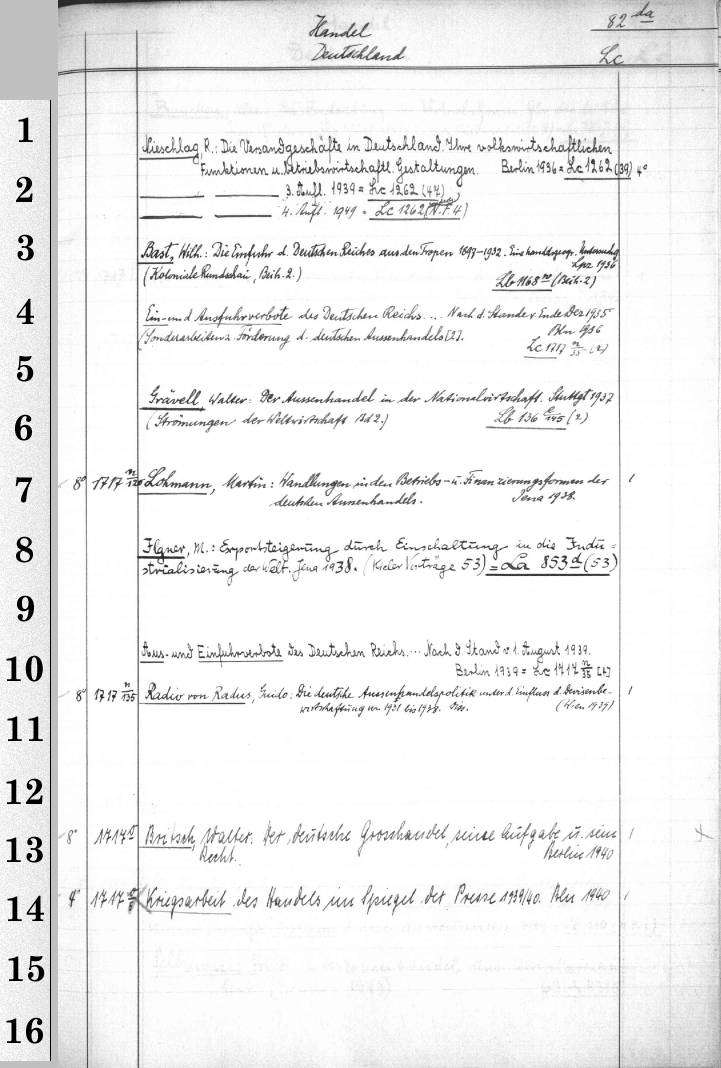 Handel
Deutschland
82 da
Lc
1
Nieschlag, R.: Die Versandgeschäfte in Deutschland. Ihre volkswirtschaftlichen
Funktionen u. betriebswirtschaftl. Gestaltungen. Berlin 1936 = Lc 1262 (39) 4°
2
3. Aufl. 1939 = Lc 1262 (47)
4. Aufl. 1949 = Lc 1262 (N.F. 4)
3
Bast, Wilh.: Die Einfuhr d. Deutschen Reiches aus den Tropen 1897-1932. Eine handelsgeogr. Untersuchg
Lpz 1936
(Koloniale Rundschau, Beih. 2.) Lb 1168 m (Beih. 2)
4
Ein- und Ausfuhrverbote des Deutschen Reichs ... Nach d. Stande v. Ende Dez 1935
Bln 1936
(Sonderarbeiten z. Förderung d. deutschen Aussenhandels [2].
Lc 1717 n/35 (2)
5
Grävell, Walter: Der Aussenhandel in der Nationalwirtschaft. Stuttgt 1937
6
(Strömungen der Weltwirtschaft Bd 2.) Lb 136 /145 (2)
7
8° 1717 n/120 Lohmann, Martin: Wandlungen in den Betriebs- u. Finanzierungsformen der 1
deutschen Aussenhandels. Jena 1938.
8
Ilgner, M.: Exportsteigerung durch Einschaltung in die Indu=
strialisierung der Welt. Jena 1938. (Kieler Vorträge 53) = La 853 d (53)
9
Aus- und Einfuhrverbote des Deutschen Reichs ... Nach d. Stand v. 1. August 1939.
10
Berlin 1939 = Lc 1717 n/35
8° 1717 n/135 Radio von Radiis, Guido: Die deutsche Aussenhandelspolitik unter d. Einfluss d. Devisenbe- 1
wirtschaftung von 1931 bis 1938. Diss. (Wien 1939)
11
12
8° 1717 Britsch, Walter. Der deutsche Grosshandel, seine Aufgabe u. sein 1
13
Recht. Berlin 1940
14
4° 1717 Kriegsarbeit des Handels im Spiegel der Presse 1939/40. Bln 1940 1
15
16